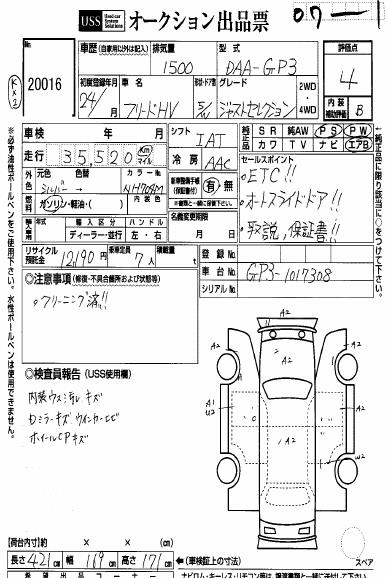 USS Used car System Solutions オークション出品票
07-1
No. 20016
車歴(自家用以外は記入) 排気量 型式 評価点
1500 DAA-GP3 4
初度登録年月 車名 形状・ドア数 グレード 2WD・4WD 内装補助評価 B
24/ フリードHV 5/W ジャストセレクション
車検 年 月 シフト IAT 純正品 SR 純AW PS PW
走行 35,520 km マイル カワ TV ナビ エアB
冷房 AAC セールスポイント
外色 元色 色替 カラーNo.
シルバー NH704M
○ETC!!
○オートスライドドア!!
○取説,保証書!!
燃料 ガソリン・軽油・( ) 内装色
新車整備手帳(保証書付) 有・無
輸入車 年式 輸入区分 ハンドル
年 ディーラー・並行 左・右
名義変更期限
月 日
リサイクル預託金 12,190 円 乗車定員 7 人 積載量 t
登録No.
車台No. GP3-1017308
シリアルNo.
◎注意事項(修復・不具合箇所および状態等)
○クリーニング済!!
◎検査員報告 (USS使用欄)
内装ウス汚レ キズ
ホイールCPキズ
A2
A2
A2
A2
A1
U2
A2
A2
A2
A2
【荷台内寸】 × × (cm)
長さ 421cm 幅 169cm 高さ 171cm
←(車検証上の寸法)
スペア
※必ず油性ボールペンをご使用下さい。水性ボールペンは使用できません。
←純正品に限り該当に○をつけて下さい。
希望出品コーナー